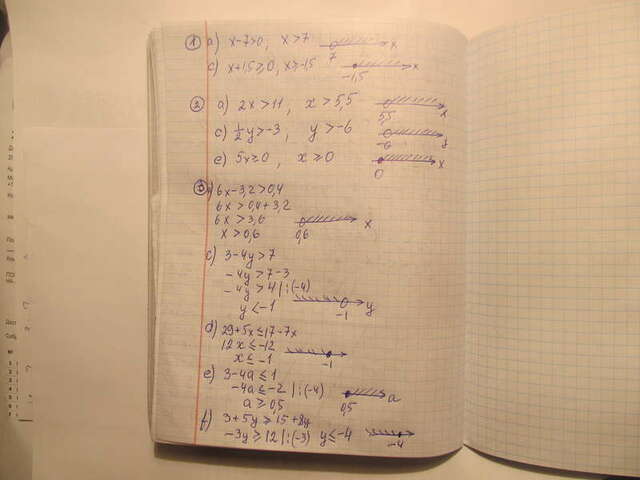 ① a) x-7>0, x>7 7 x
c) x+1,5≥0, x≥-1,5 -1,5 x
② a) 2x>11, x>5,5 5,5 x
c) 1/2y>-3, y>-6 -6 y
e) 5x≥0, x≥0 0 x
③ 6x-3,2>0,4
6x>0,4+3,2
6x>3,6 x
x>0,6 0,6
c) 3-4y>7
-4y>7-3
-4y>4 |:(-4) y
y<-1 -1
d) 29+5x≤17-7x
12x≤-12
x≤-1 -1
e) 3-4a≤1
-4a≤-2 |:(-4) a
a≥0,5 0,5
f) 3+5y≥15+8y
-3y≥12 |:(-3) y≤-4 -4